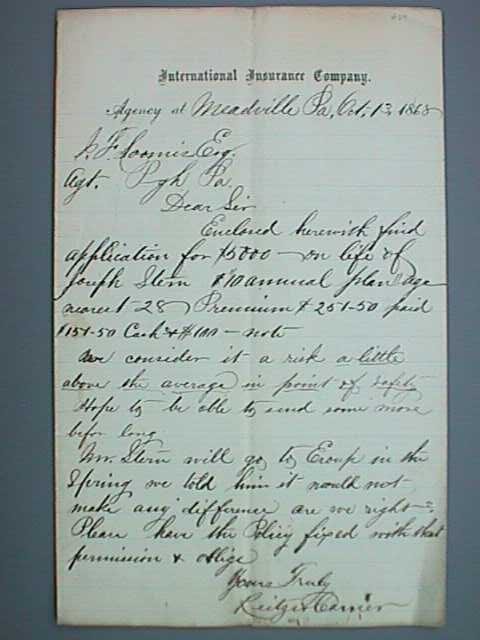 International Insurance Company.
Agency at Meadville Pa, Oct. 13, 1868
J. F. Loomis Esq.
Agt. Pgh Pa.
Dear Sir
Enclosed herewith find
application for $5000 - on life of
Joseph Stern "10 annual plan" age
nearest 28 Premium $251-50 paid
$151-50 Cash & $100 - note
We consider it a risk a little
above the average in point of safty
Hope to be able to send some more
befor long
Mr. Stern will go to Eroup in the
Spring we told him it would not
make any difference are we right
Please have the Policy fixed with that
permission & oblige
Yours Truly